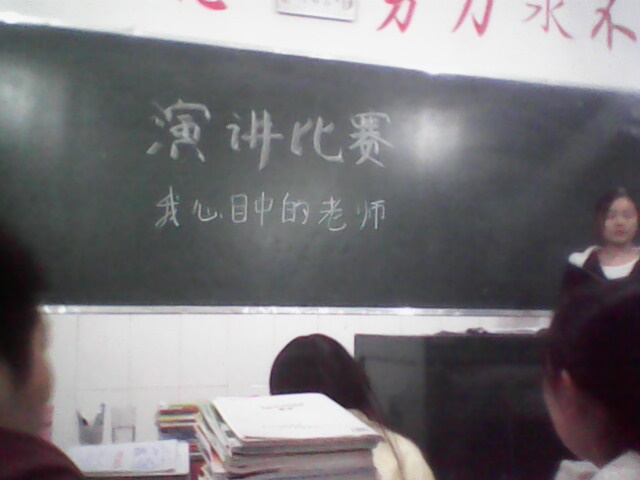 努力求不
演讲比赛
我心目中的老师